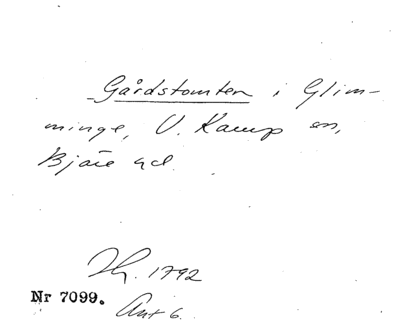 Gårdstomten i Glim-
minge, V. Karup sn,
Bjäre hd.
Hz. 1792
Nr 7099.
Ant 6.